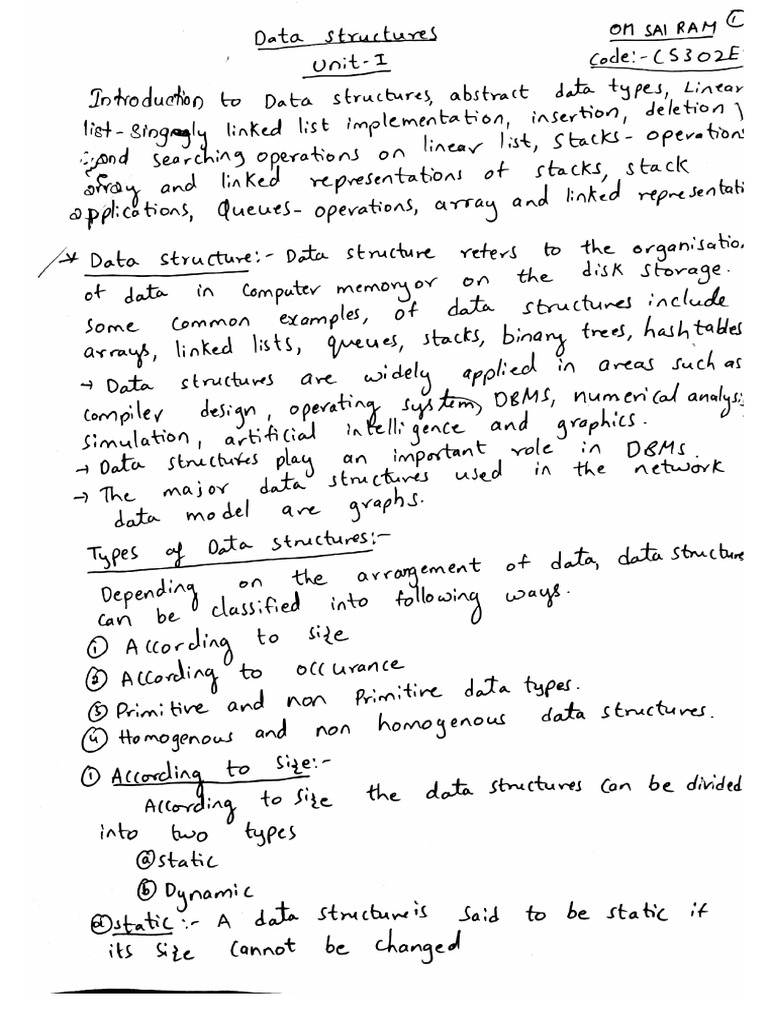 Data Structures
OM SAI RAM ①
Unit-I
Code:- CS302E
Introduction to Data structures, abstract data types, Linear
list - Singly linked list implementation, insertion, deletion
and searching operations on linear list, Stacks - operations
array and linked representations of stacks, stack
applications, Queues - operations, array and linked representati
* Data structure:- Data structure refers to the organisatio
of data in computer memory or on the disk storage.
some common examples, of data structures include
arrays, linked lists, queues, stacks, binary trees, hash tables
→ Data structures are widely applied in areas such as
compiler design, operating system, DBMS, numerical analysis
simulation, artificial intelligence and graphics.
→ Data structures play an important role in DBMS.
→ The major data structures used in the network
data model are graphs.
Types of Data structures:-
Depending on the arrangement of data, data structure
can be classified into following ways.
① According to size
② According to occurance
③ Primitive and non Primitive data types.
④ Homogenous and non homogenous data structures.
① According to Size:-
According to size the data structures can be divided
into two types
ⓐ static
ⓑ Dynamic
ⓐ static:- A data structure is said to be static if
its size cannot be changed